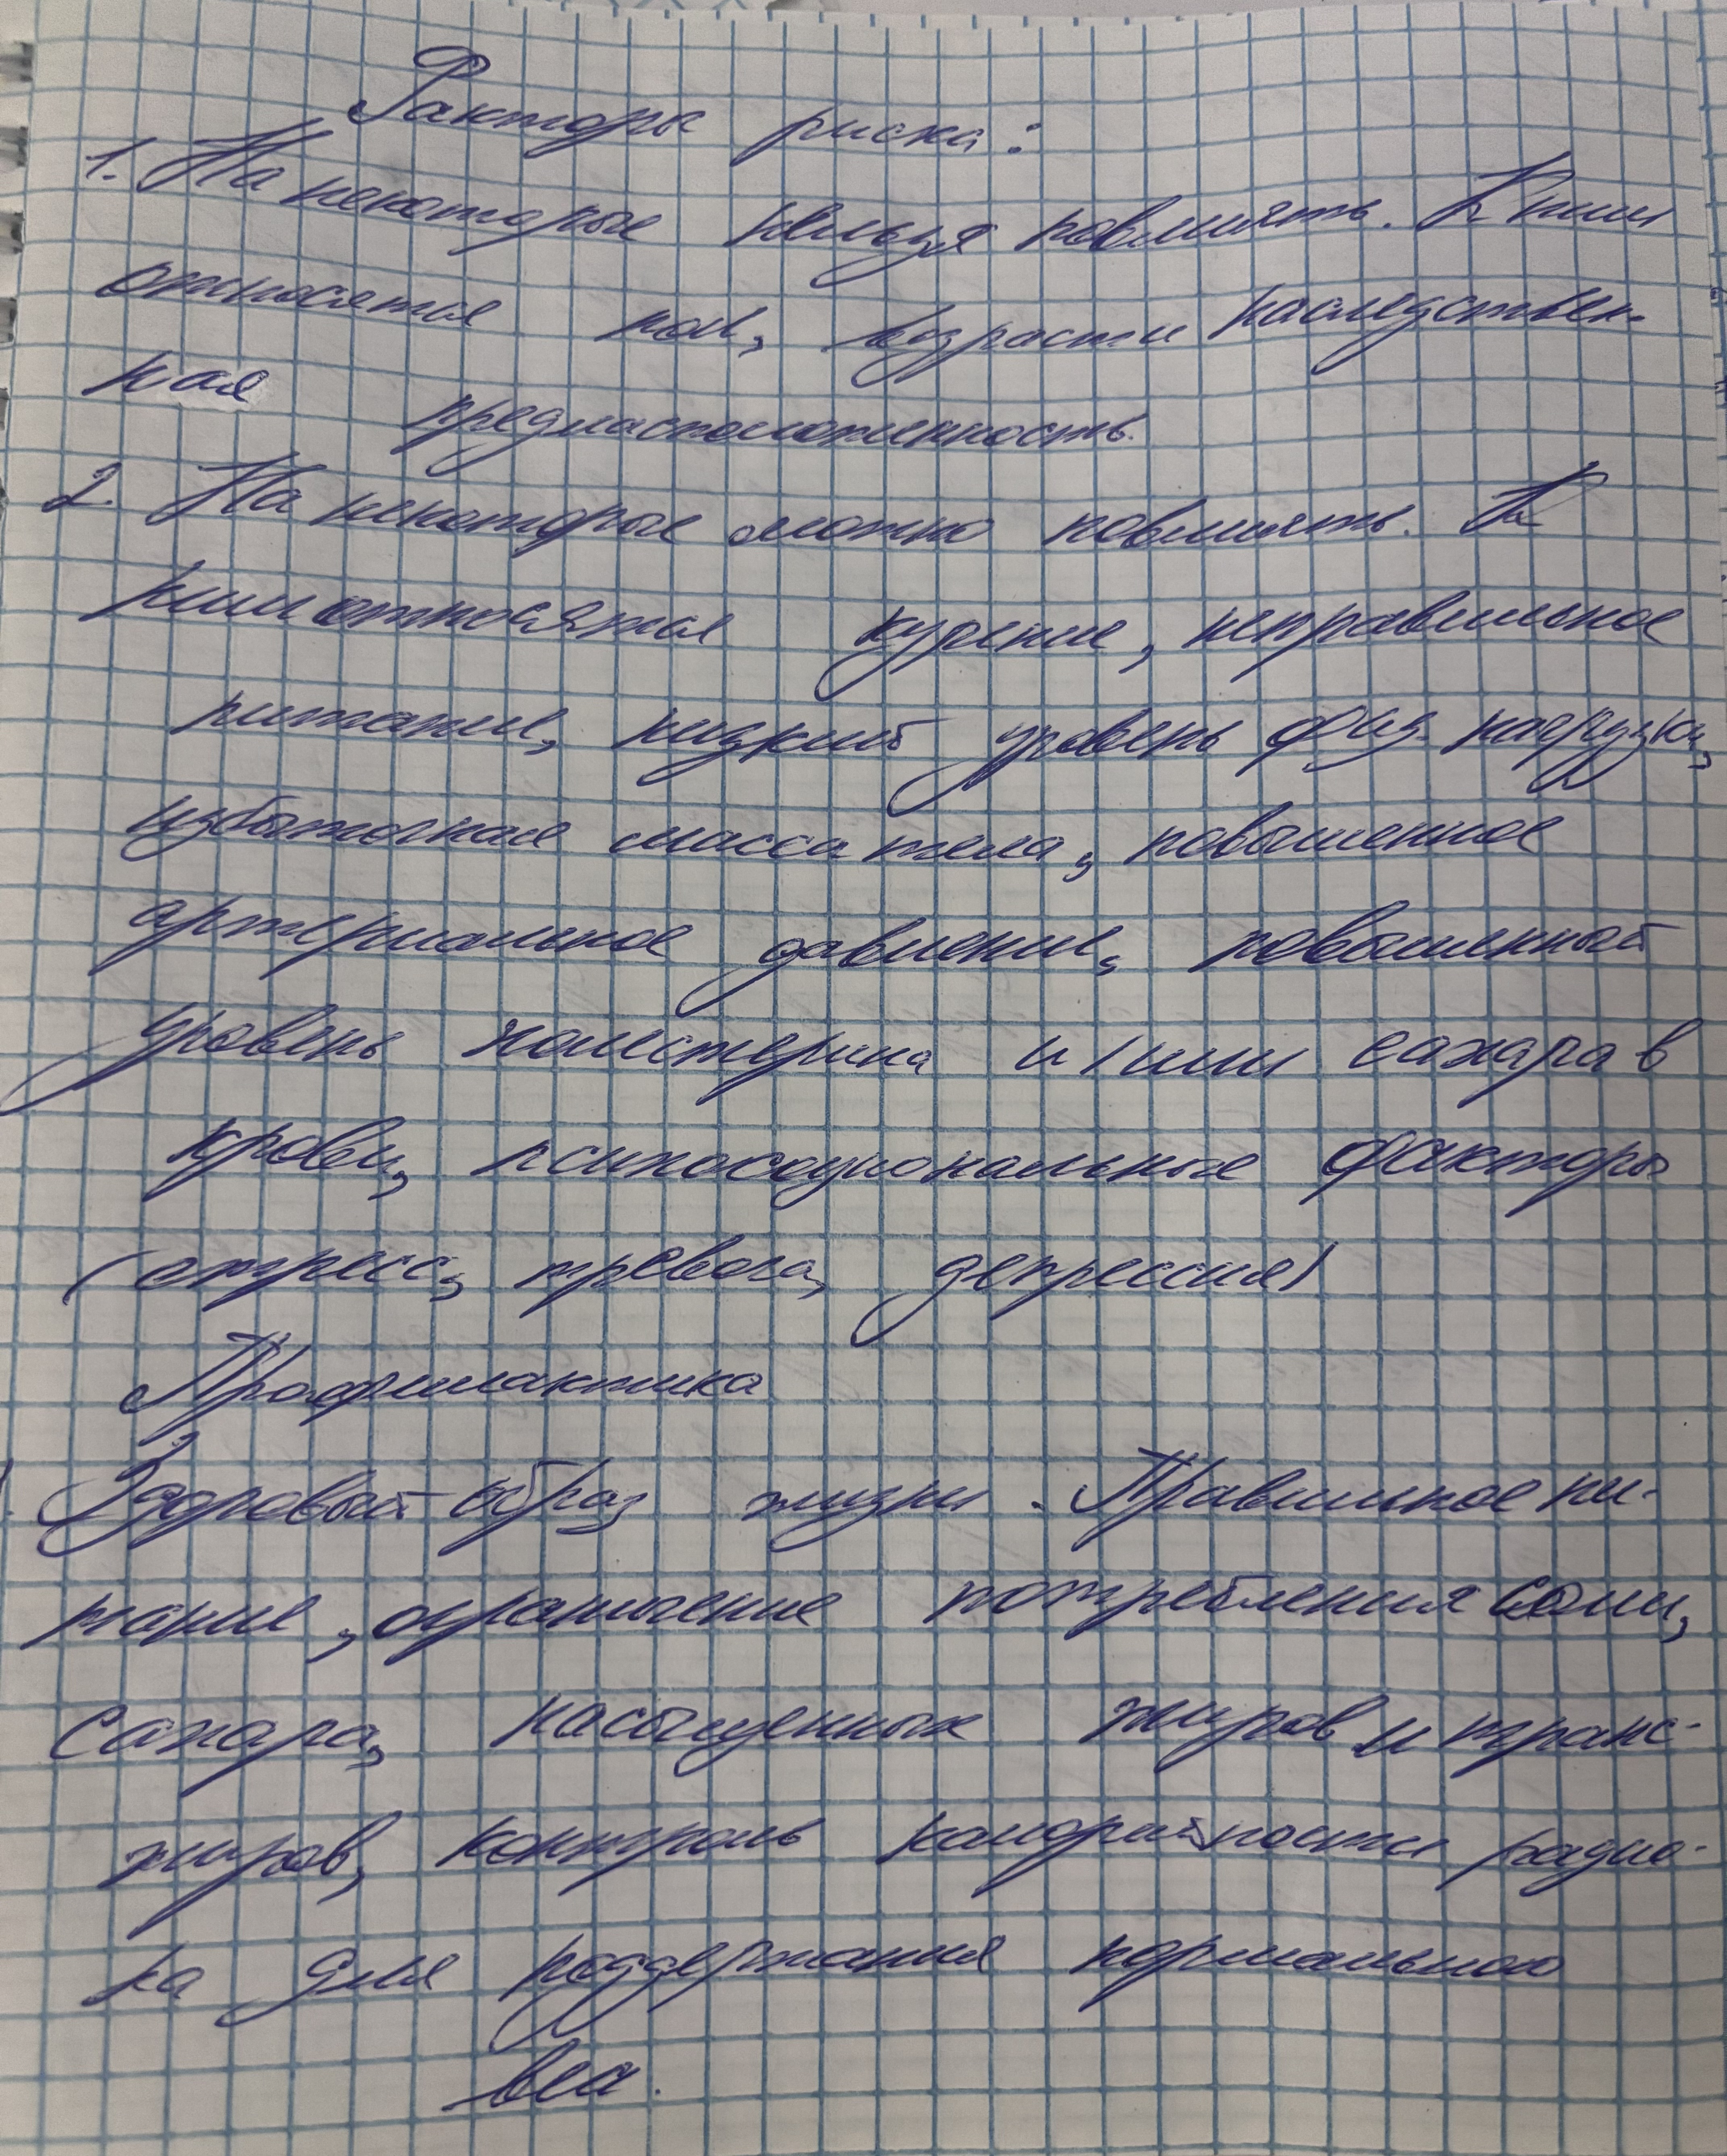 Факторы риска:
1. На некоторые нельзя повлиять. К ним
относятся пол, возраст и наследствен-
ная предрасположенность.
2. На некоторые можно повлиять. К
ним относятся курение, неправильное
питание, низкий уровень физ. нагрузки,
избыточная масса тела, повышенное
артериальное давление, повышенный
уровень холестерина и/или сахара в
крови, психосоциональные факторы
(стресс, тревога, депрессия)
Профилактика
Здоровый образ жизни. Правильное пи-
тание, ограничение потребления соли,
сахара, насыщенных жиров и транс-
жиров, контроль калорийности рацио-
на для поддержания нормального
веса.